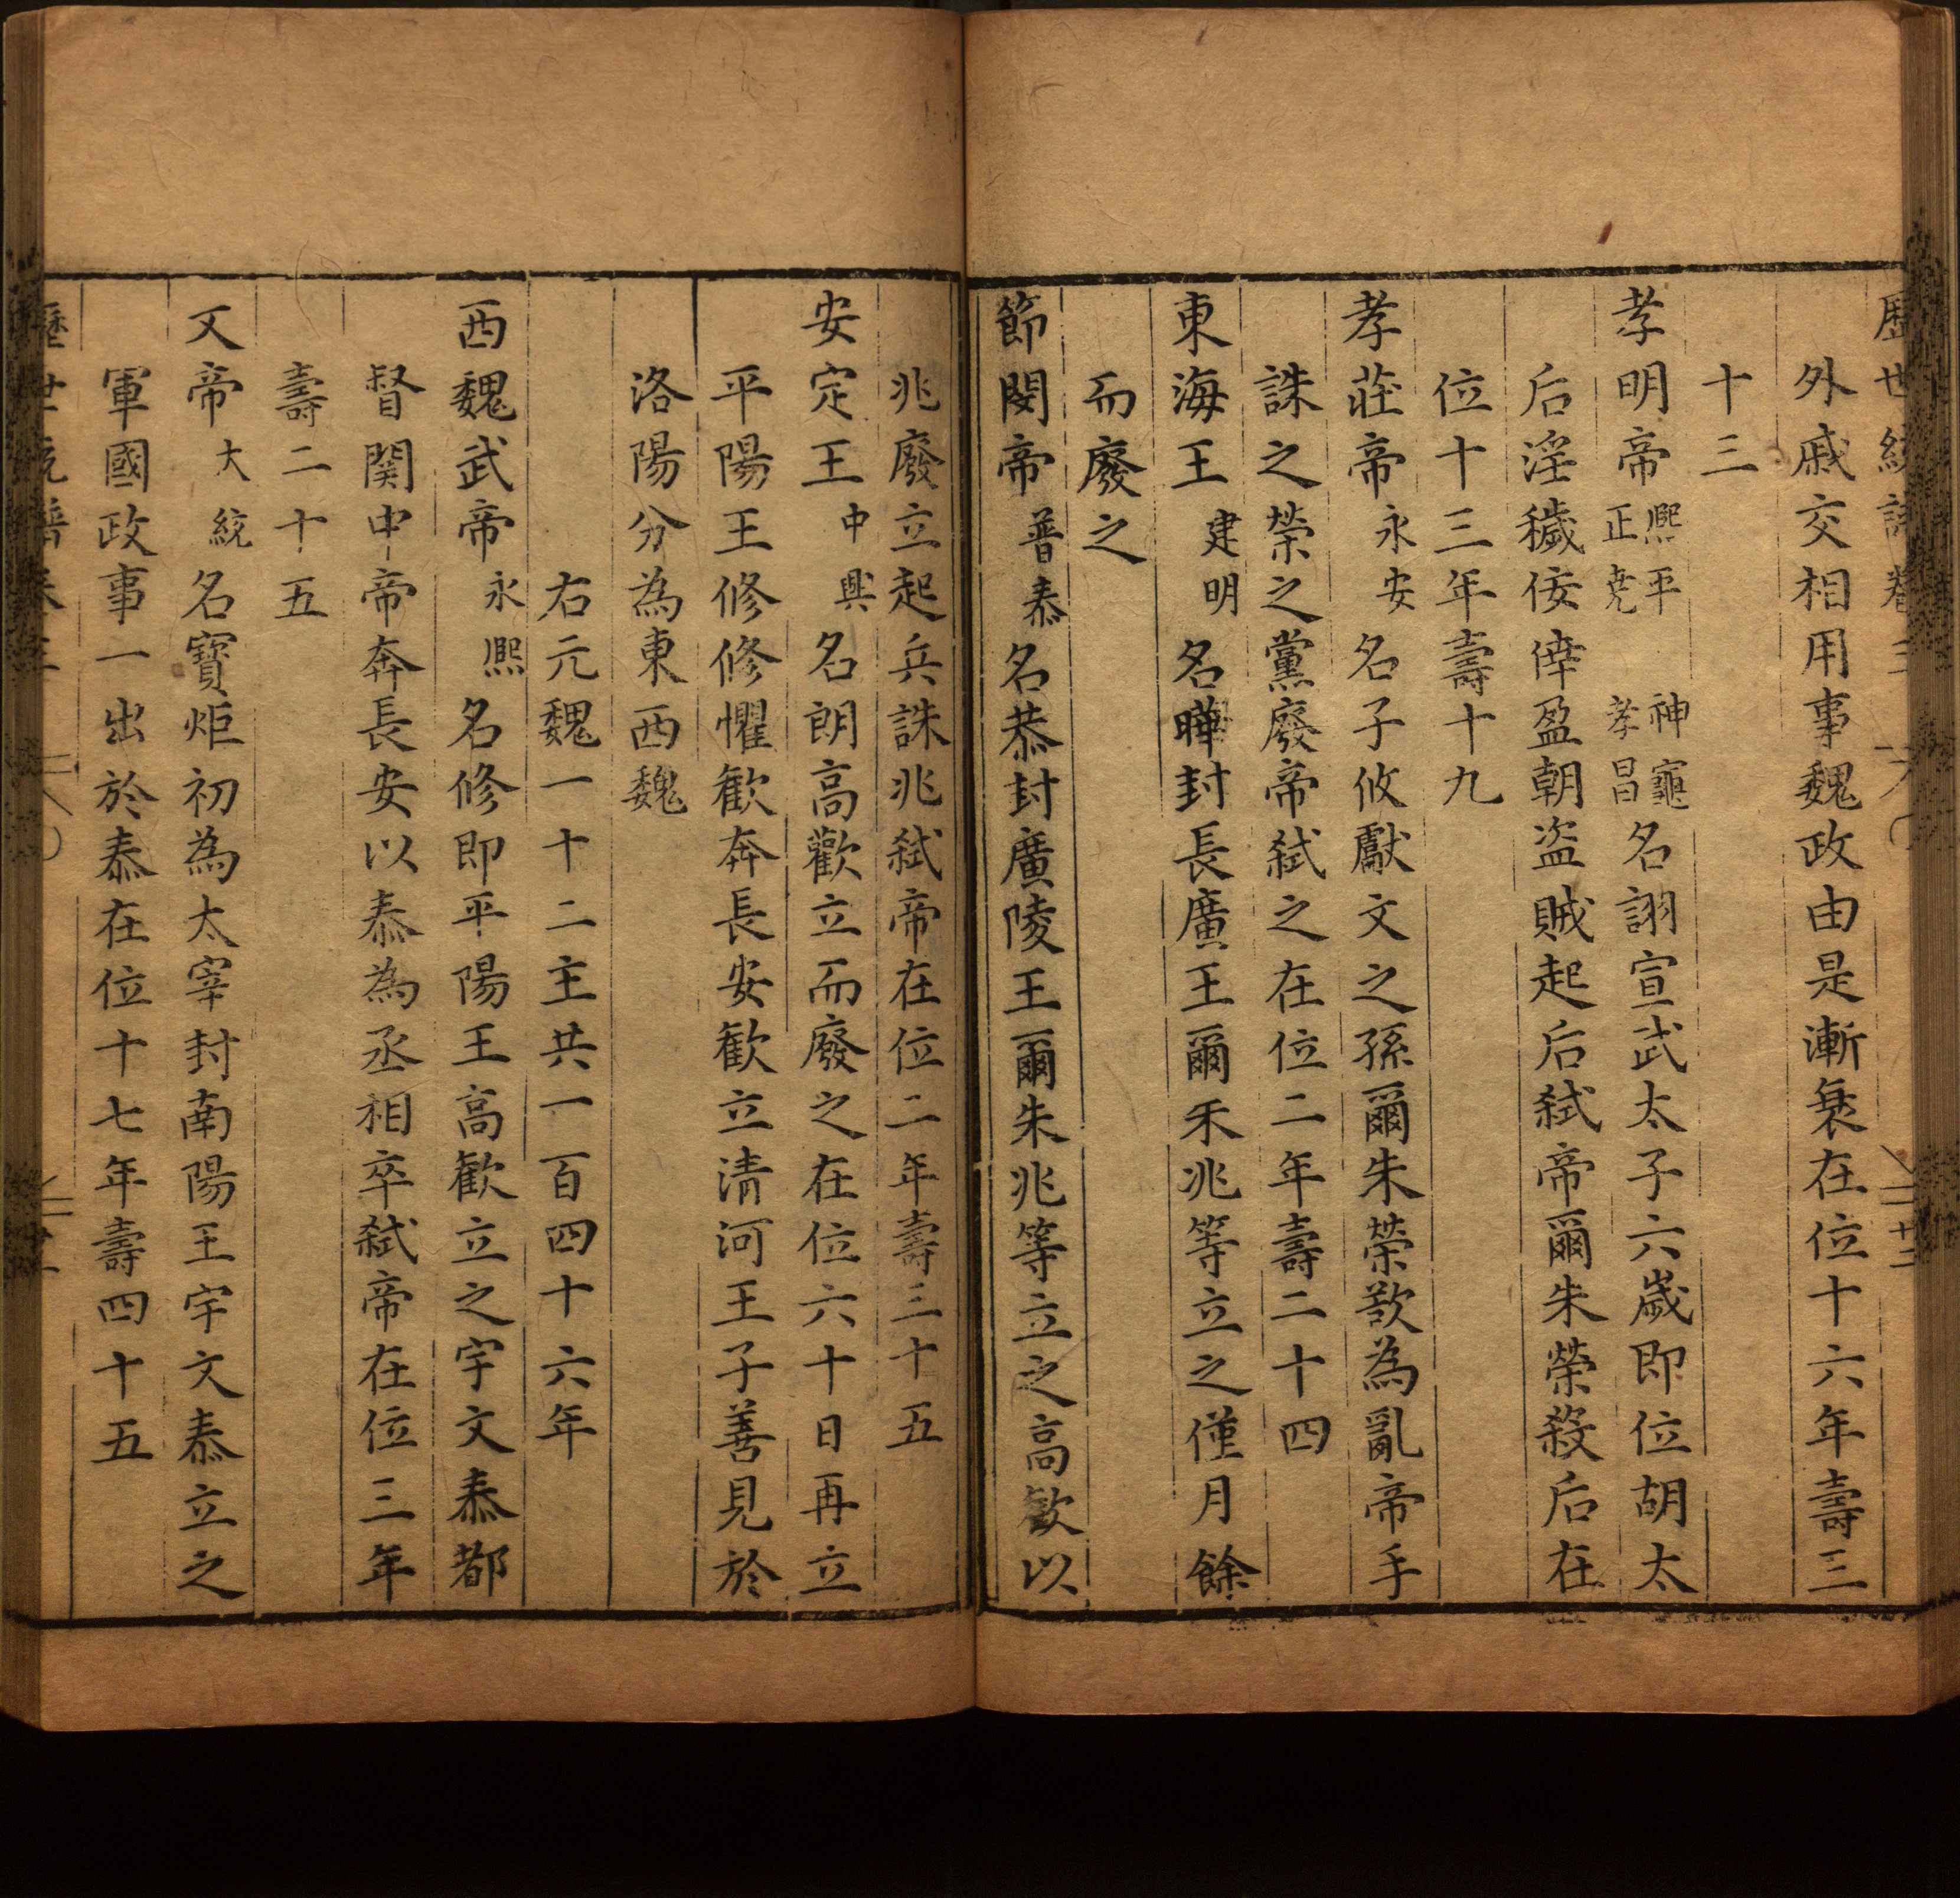 歷世統譜卷三 十二
外戚交相用事魏政由是漸衰在位十六年壽三
十三
孝明帝熙平神龜正光孝昌名詡宣武太子六歲即位胡太
后淫穢佞倖盈朝盗賊起后弑帝爾朱榮殺后在
位十三年壽十九
孝莊帝永安名子攸獻文之孫爾朱榮欲為亂帝手
誅之榮之黨廢帝弑之在位二年壽二十四
東海王建明名曄封長廣王爾禾兆等立之僅月餘
而廢之
節閔帝普泰名恭封廣陵王爾朱兆等立之高歡以
兆廢立起兵誅兆弑帝在位二年壽三十五
安定王中興名朗高歡立而廢之在位六十日再立
平陽王修修懼歡奔長安歡立清河王子善見於
洛陽分為東西魏
右元魏一十二主共一百四十六年
西魏武帝永熙名修即平陽王高歡立之宇文泰都
督関中帝奔長安以泰為丞相卒弑帝在位三年
壽二十五
文帝大統名寶炬初為太宰封南陽王宇文泰立之
軍國政事一出於泰在位十七年壽四十五
歷世統譜卷三